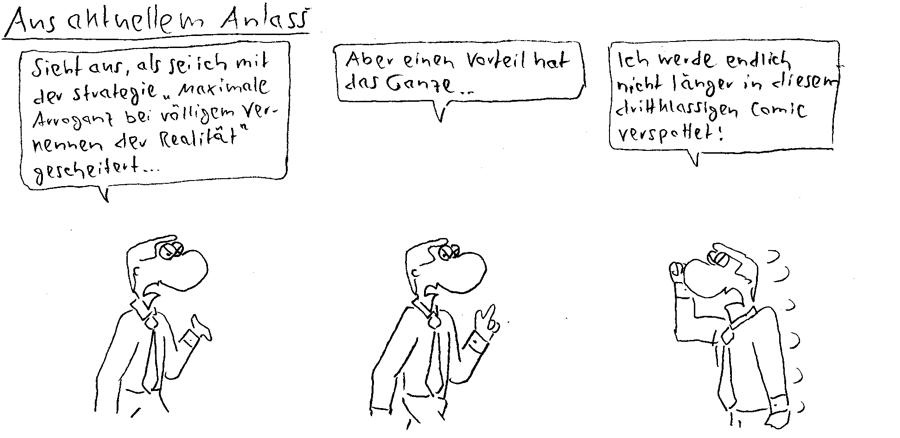 Aus aktuellem Anlass
Sieht aus, als sei ich mit
der Strategie „Maximale
Arroganz bei völligem Ver-
kennen der Realität"
gescheitert...
Aber einen Vorteil hat
das Ganze...
Ich werde endlich
nicht länger in diesem
drittklassigen Comic
verspottet!